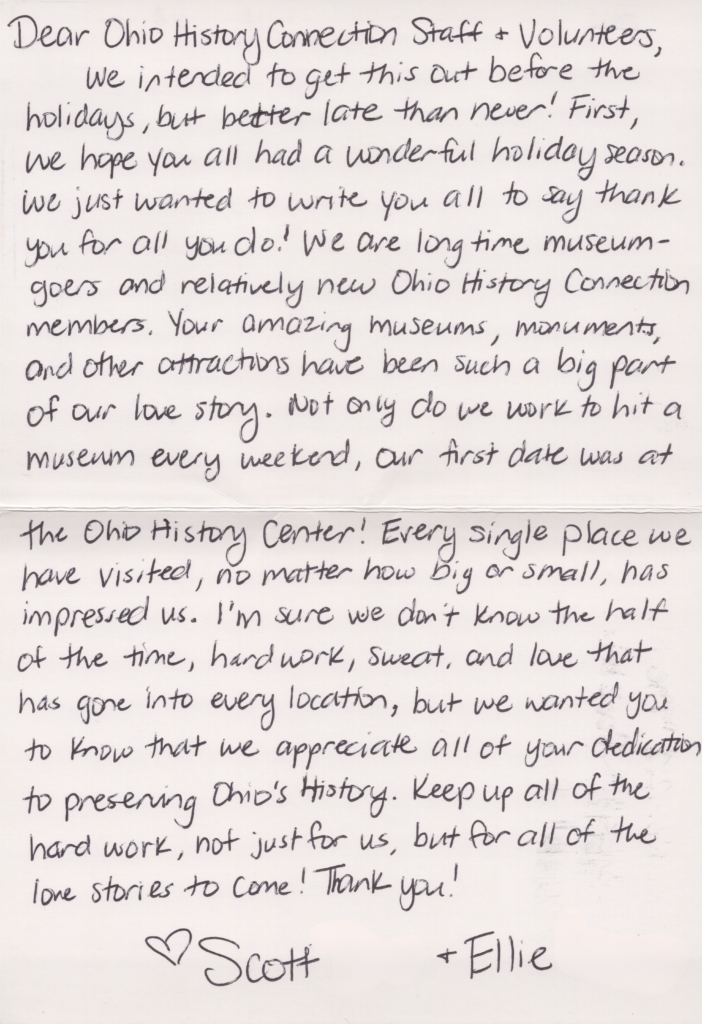 Dear Ohio History Connection Staff + Volunteers,
We intended to get this out before the
holidays, but better late than never! First,
we hope you all had a wonderful holiday season.
We just wanted to write you all to say thank
you for all you do! We are long time museum-
goers and relatively new Ohio History Connection
members. Your amazing museums, monuments,
and other attractions have been such a big part
of our love story. Not only do we work to hit a
museum every weekend, our first date was at
the Ohio History Center! Every single place we
have visited, no matter how big or small, has
impressed us. I'm sure we don't know the half
of the time, hard work, sweat, and love that
has gone into every location, but we wanted you
to know that we appreciate all of your dedication
to preserving Ohio's History. Keep up all of the
hard work, not just for us, but for all of the
love stories to come! Thank you!
♡ Scott + Ellie